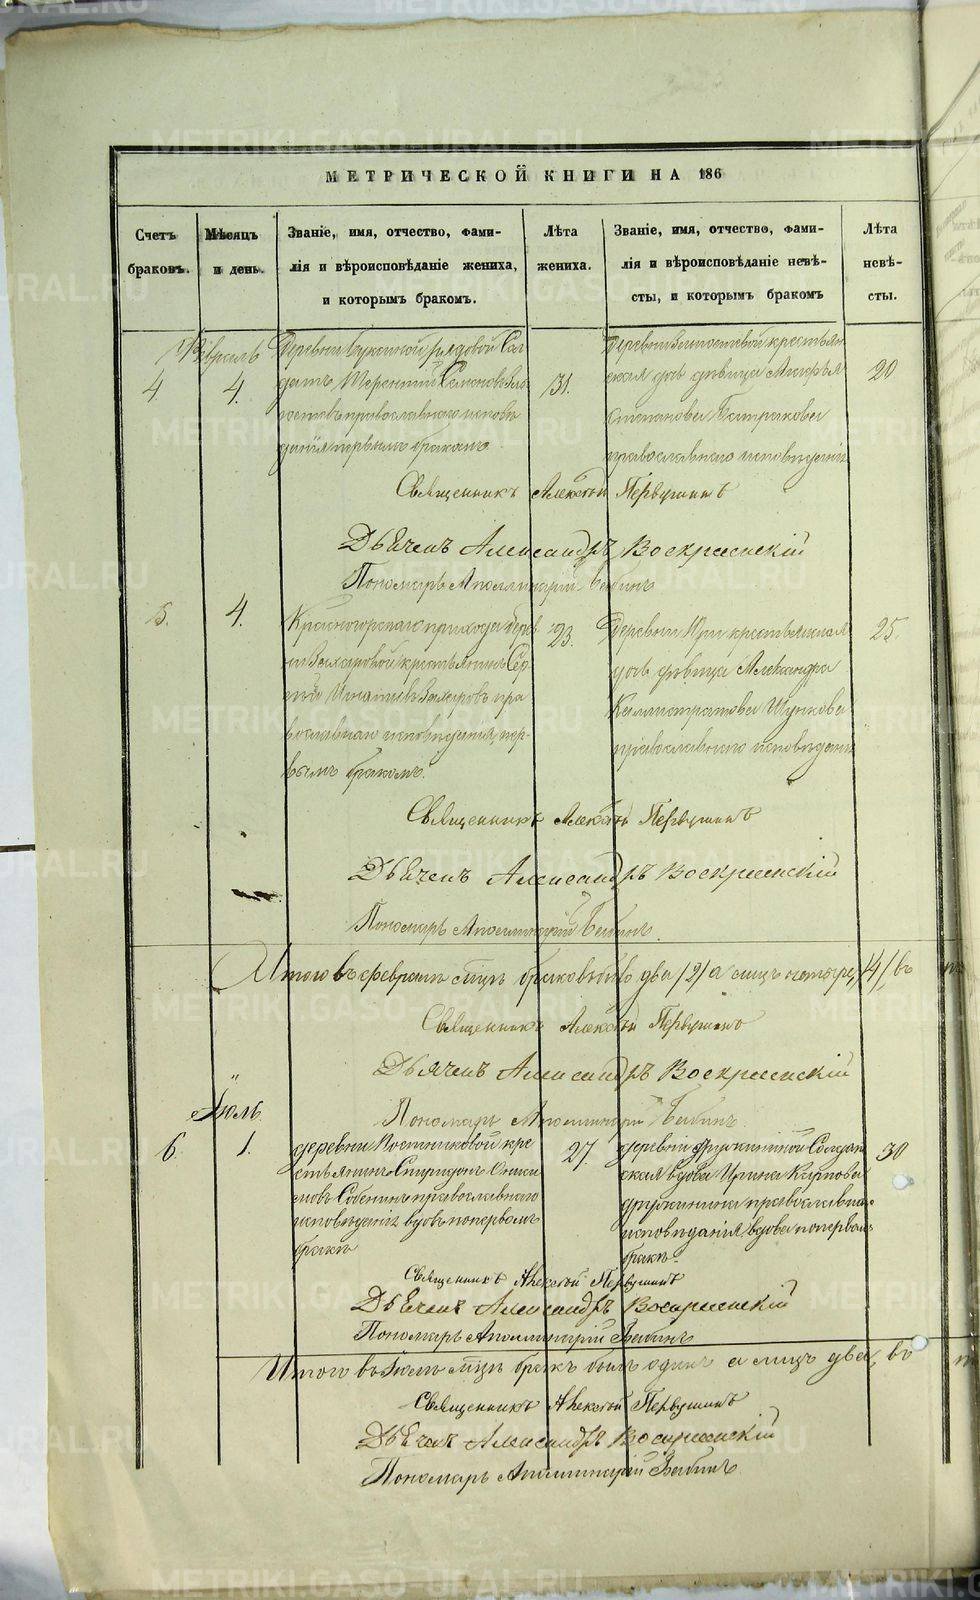 МЕТРИЧЕСКОЙ КНИГИ НА 186
Счетъ браковъ.
Мѣсяцъ и день.
Званіе, имя, отчество, фами-
лія и вѣроисповѣданіе жениха,
и которымъ бракомъ.
Лѣта жениха.
Званіе, имя, отчество, фами-
лія и вѣроисповѣданіе невѣ-
сты, и которымъ бракомъ
Лѣта невѣ-
сты.
Февраль
4
4.
Деревни рядовой Сол
датъ Терентий Семеновъ
православнаго исповѣ
данія первымъ бракомъ.
31.
Деревни крестьян
ская дѣвица Марѳа
Степанова Батракова
православнаго исповѣданія
20
Священникъ Алексѣй Первушинъ
Дьячекъ Александръ Воскресенскій
Пономарь Аполлинарій Бабинъ
5.
4.
Красногорскаго прихода дерев
ни Захаровой крестьянинъ Сер
гѣй Игнатіевъ Захаровъ пра
вославнаго исповѣданія, пер-
вымъ бракомъ.
23.
Деревни крестьянская
дѣвица Александра
Каллистратова Шункова
православнаго исповѣданія
25.
Священникъ Алексѣй Первушинъ
Дьячекъ Александръ Воскресенскій
Пономарь Аполлинарій Бабинъ.
Итого въ февралѣ мѣсцѣ браковъ было два /2/ а лицъ четыре /4/, въ
Священникъ Алексѣй Первушинъ
Дьячекъ Александръ Воскресенскій
Пономарь Аполлинарій Бабинъ.
Іюль
6
1.
деревни Постниковой кре
стьянинъ Спиридонъ Ониси
мовъ Собенинъ православнаго
исповѣданія вдовъ по первомъ
бракѣ
27.
деревни Дружининой Солдат
ская вдова Ирина Карпова
Дружинина православнаго
исповѣданія вдова по первомъ
бракѣ.
30
Священникъ Алексѣй Первушинъ
Дьячекъ Александръ Воскресенскій
Пономарь Аполлинарій Бабинъ
Итого въ Іюлѣ мѣсцѣ бракъ былъ одинъ а лицъ два, въ
Священникъ Алексѣй Первушинъ
Дьячекъ Александръ Воскресенскій
Пономарь Аполлинарій Бабинъ
METRIKI.GASO-URAL.RU